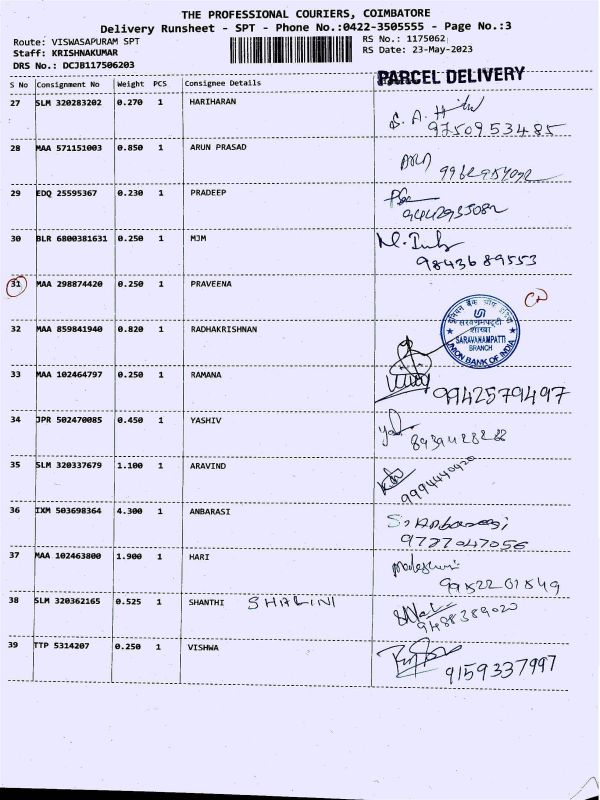 THE PROFESSIONAL COURIERS, COIMBATORE
Delivery Runsheet - SPT - Phone No.:0422-3505555 - Page No.:3
Route: VISWASAPURAM SPT
RS No.: 1175062
Staff: KRISHNAKUMAR
RS Date: 23-May-2023
DRS No.: DCJB117506203
PARCEL DELIVERY
S No Consignment No Weight PCS Consignee Details
27 SLM 320283202 0.270 1 HARIHARAN
9750953485
28 MAA 571151003 0.850 1 ARUN PRASAD
29 EDQ 25595367 0.230 1 PRADEEP
30 BLR 6800381631 0.250 1 MJM
9843689553
31 MAA 298874420 0.250 1 PRAVEENA
32 MAA 859841940 0.820 1 RADHAKRISHNAN
SARAVANAMPATTI
BRANCH
UNION BANK OF INDIA
33 MAA 102464797 0.250 1 RAMANA
9942579497
34 JPR 502470085 0.450 1 YASHIV
35 SLM 320337679 1.100 1 ARAVIND
9994440420
36 IXM 503698364 4.300 1 ANBARASI
S. Anbarasi
9787047056
37 MAA 102463800 1.900 1 HARI
38 SLM 320362165 0.525 1 SHANTHI SHALINI
9488389020
39 TTP 5314207 0.250 1 VISHWA
9159337997